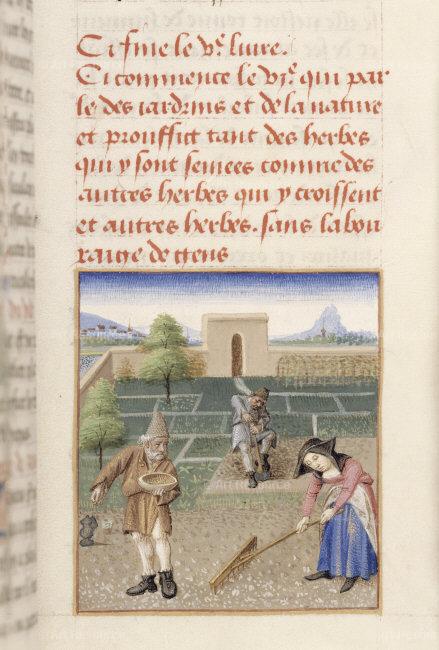 Ci fine le vᵉ livre.
Ci commence le viᵉ qui par
le des iardins et de la nature
et prouffict tant des herbes
qui y sont semees comme des
autres herbes qui y croissent
et autres herbes. sans labou
raige de gens